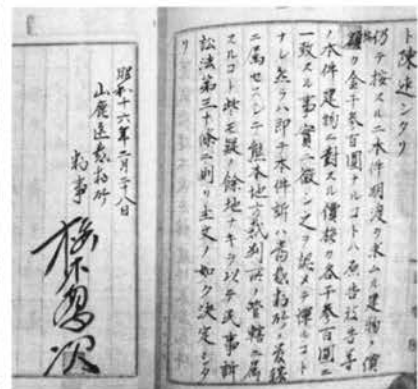 ト陳述シタリ
仍テ按スルニ本件明渡ヲ求ムル建物ノ價
額カ金千参百圓ナルコトハ原告被告等
ノ本件建物ニ對スル價格カ金千参百圓ニ
一致スル事實ニ徴シ之ヲ認メテ憚ルコト
ナシ然ラハ即チ本件訴ハ當裁判所ノ管轄
ニ属セスシテ熊本地方裁判所ノ管轄ニ属
スルコト疑ノ餘地ナキヲ以テ民事訴
訟法第三十條ニ則リ主文ノ如ク決定シタ
リ
昭和十六年二月二十八日
山鹿区裁判所
判事